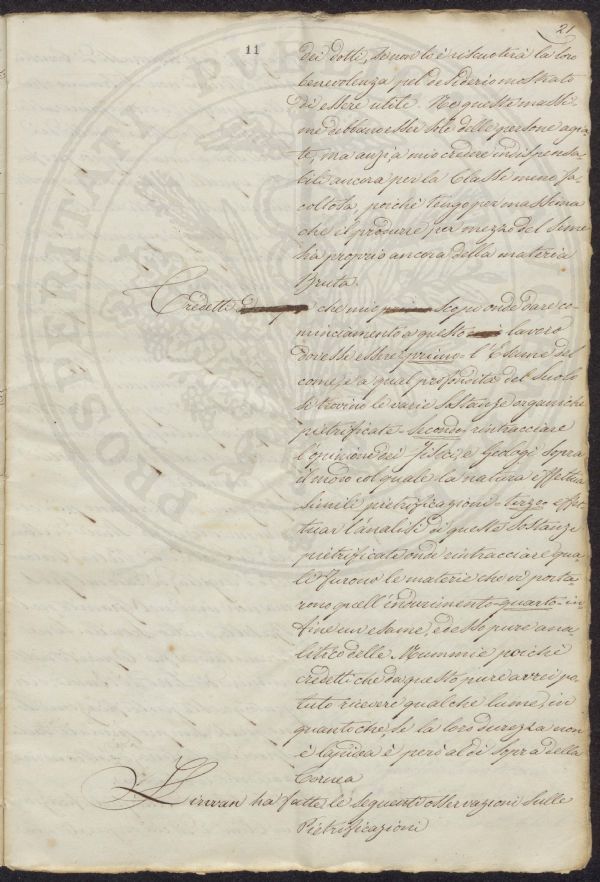 21
11
dei dotti, se non lo è riscuoterà la loro
benevolenza pel desiderio mostrato
di essere utile. Ne queste massi-
me debbano esser solo delle persone agia-
te, ma anzi, a mio credere indispensa-
bili ancora per la Classe meno fa-
coltosa, perchè tengo per massima
che il produrre per mezzo del Sime
sia proprio ancora della materia
Bruta.
Credetti che miei Scopi onde dare co-
minciamento a questo lavoro
dovesse essere primo l'Esame del
come, e a qual profondità del Suolo
si trovino le varie Sostanze organiche
pietrificate - secondo rintracciare
l'opinione dei Fisici, e Geologi sopra
il modo col quale la natura effettua
simili pietrificazioni - terzo effet-
tuar l'analisi di queste Sostanze
pietrificate onde rintracciare qua-
li furono le materie che vi porta-
rono quell'indurimento - quarto in-
fine un esame, ed esso pure ana-
litico delle Mummie poichè
credetti che da questo pure avrei po-
tuto ricevere qualche lume, in
quanto che, se la loro durezza non
è lapidea è però al di sopra della
Cornea
Kirwan ha fatte le seguenti osservazioni sulle
Pietrificazioni
PROSPERITATI PVBL